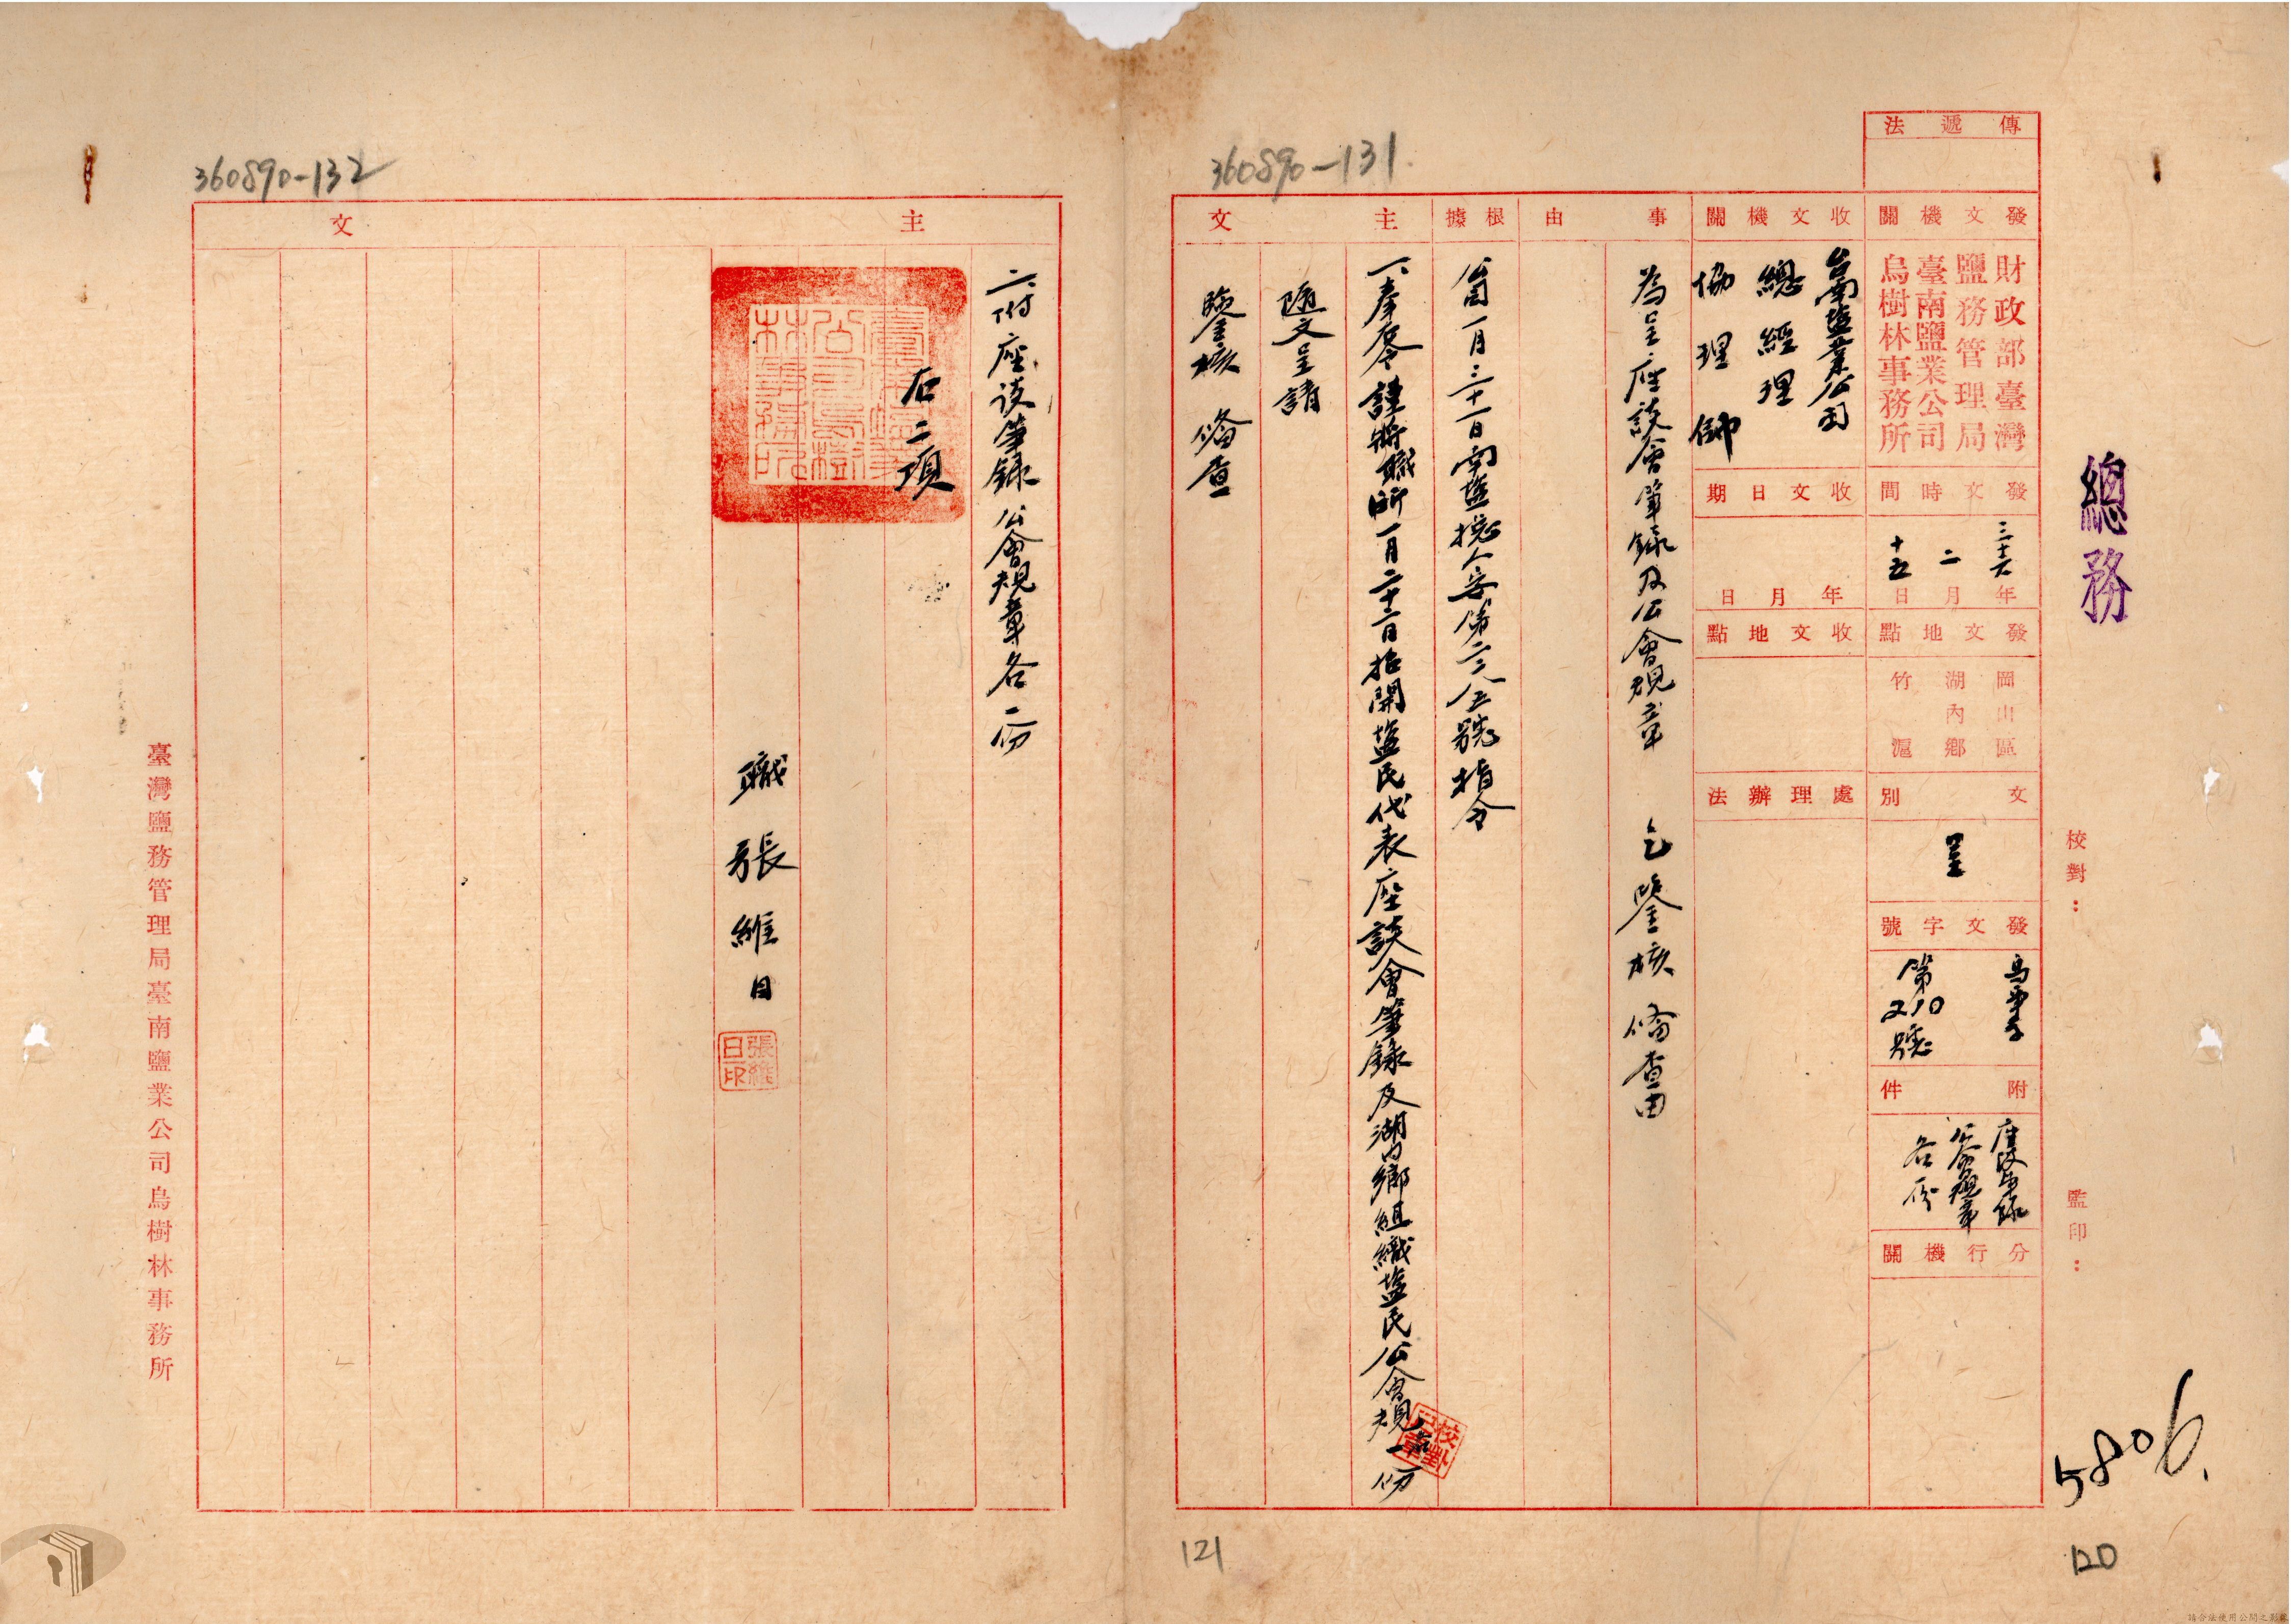 360890-131
傳遞法
發文機關
財政部臺灣
鹽務管理局
臺南鹽業公司
烏樹林事務所
發文時間
三十六年
二月
十五日
發文地點
岡山區
湖內鄉
竹滬
文別
呈
發文字號
烏事字
第210號
附件
座談筆錄
公會規章
各份
分行機關
收文機關
台南塩業公司
總經理
協理
收文日期
年月日
收文地點
處理辦法
事由
為呈座談會筆錄及公會規章 乞鑒核備查由
根據
一月三十一日南塩總人安第二三九五號指令
主文
一、奉令謹將職所一月二十二日招開塩民代表座談會筆錄及湖內鄉組織塩民公會規章一份
隨文呈請
鑒核備查
總務
校對：
監印：
5806.
120
121
360890-132
主文
二、附座談筆錄公會規章各一份
右二項
職張維日
張維日印
臺灣鹽務管理局臺南鹽業公司烏樹林事務所
請合法使用公開之影像